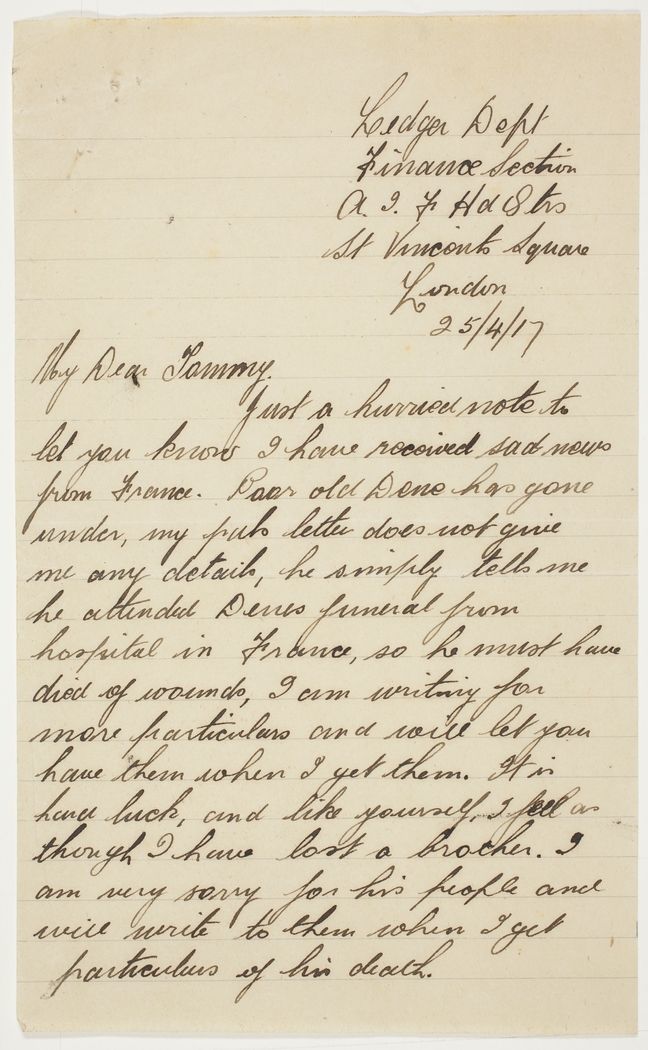 Ledger Dept
Finance Section
A. I. F Hd Qtrs
St Vincents Square
London
25/4/17
My Dear Tommy.
Just a hurried note to
let you know I have received sad news
from France. Poor old Dene has gone
under, my pals letter does not give
me any details, he simply tells me
he attended Denes funeral from
hospital in France, so he must have
died of wounds, I am writing for
more particulars and will let you
have them when I get them. It is
hard luck, and like yourself, I feel as
though I have lost a brother. I
am very sorry for his people and
will write to them when I get
particulars of his death.